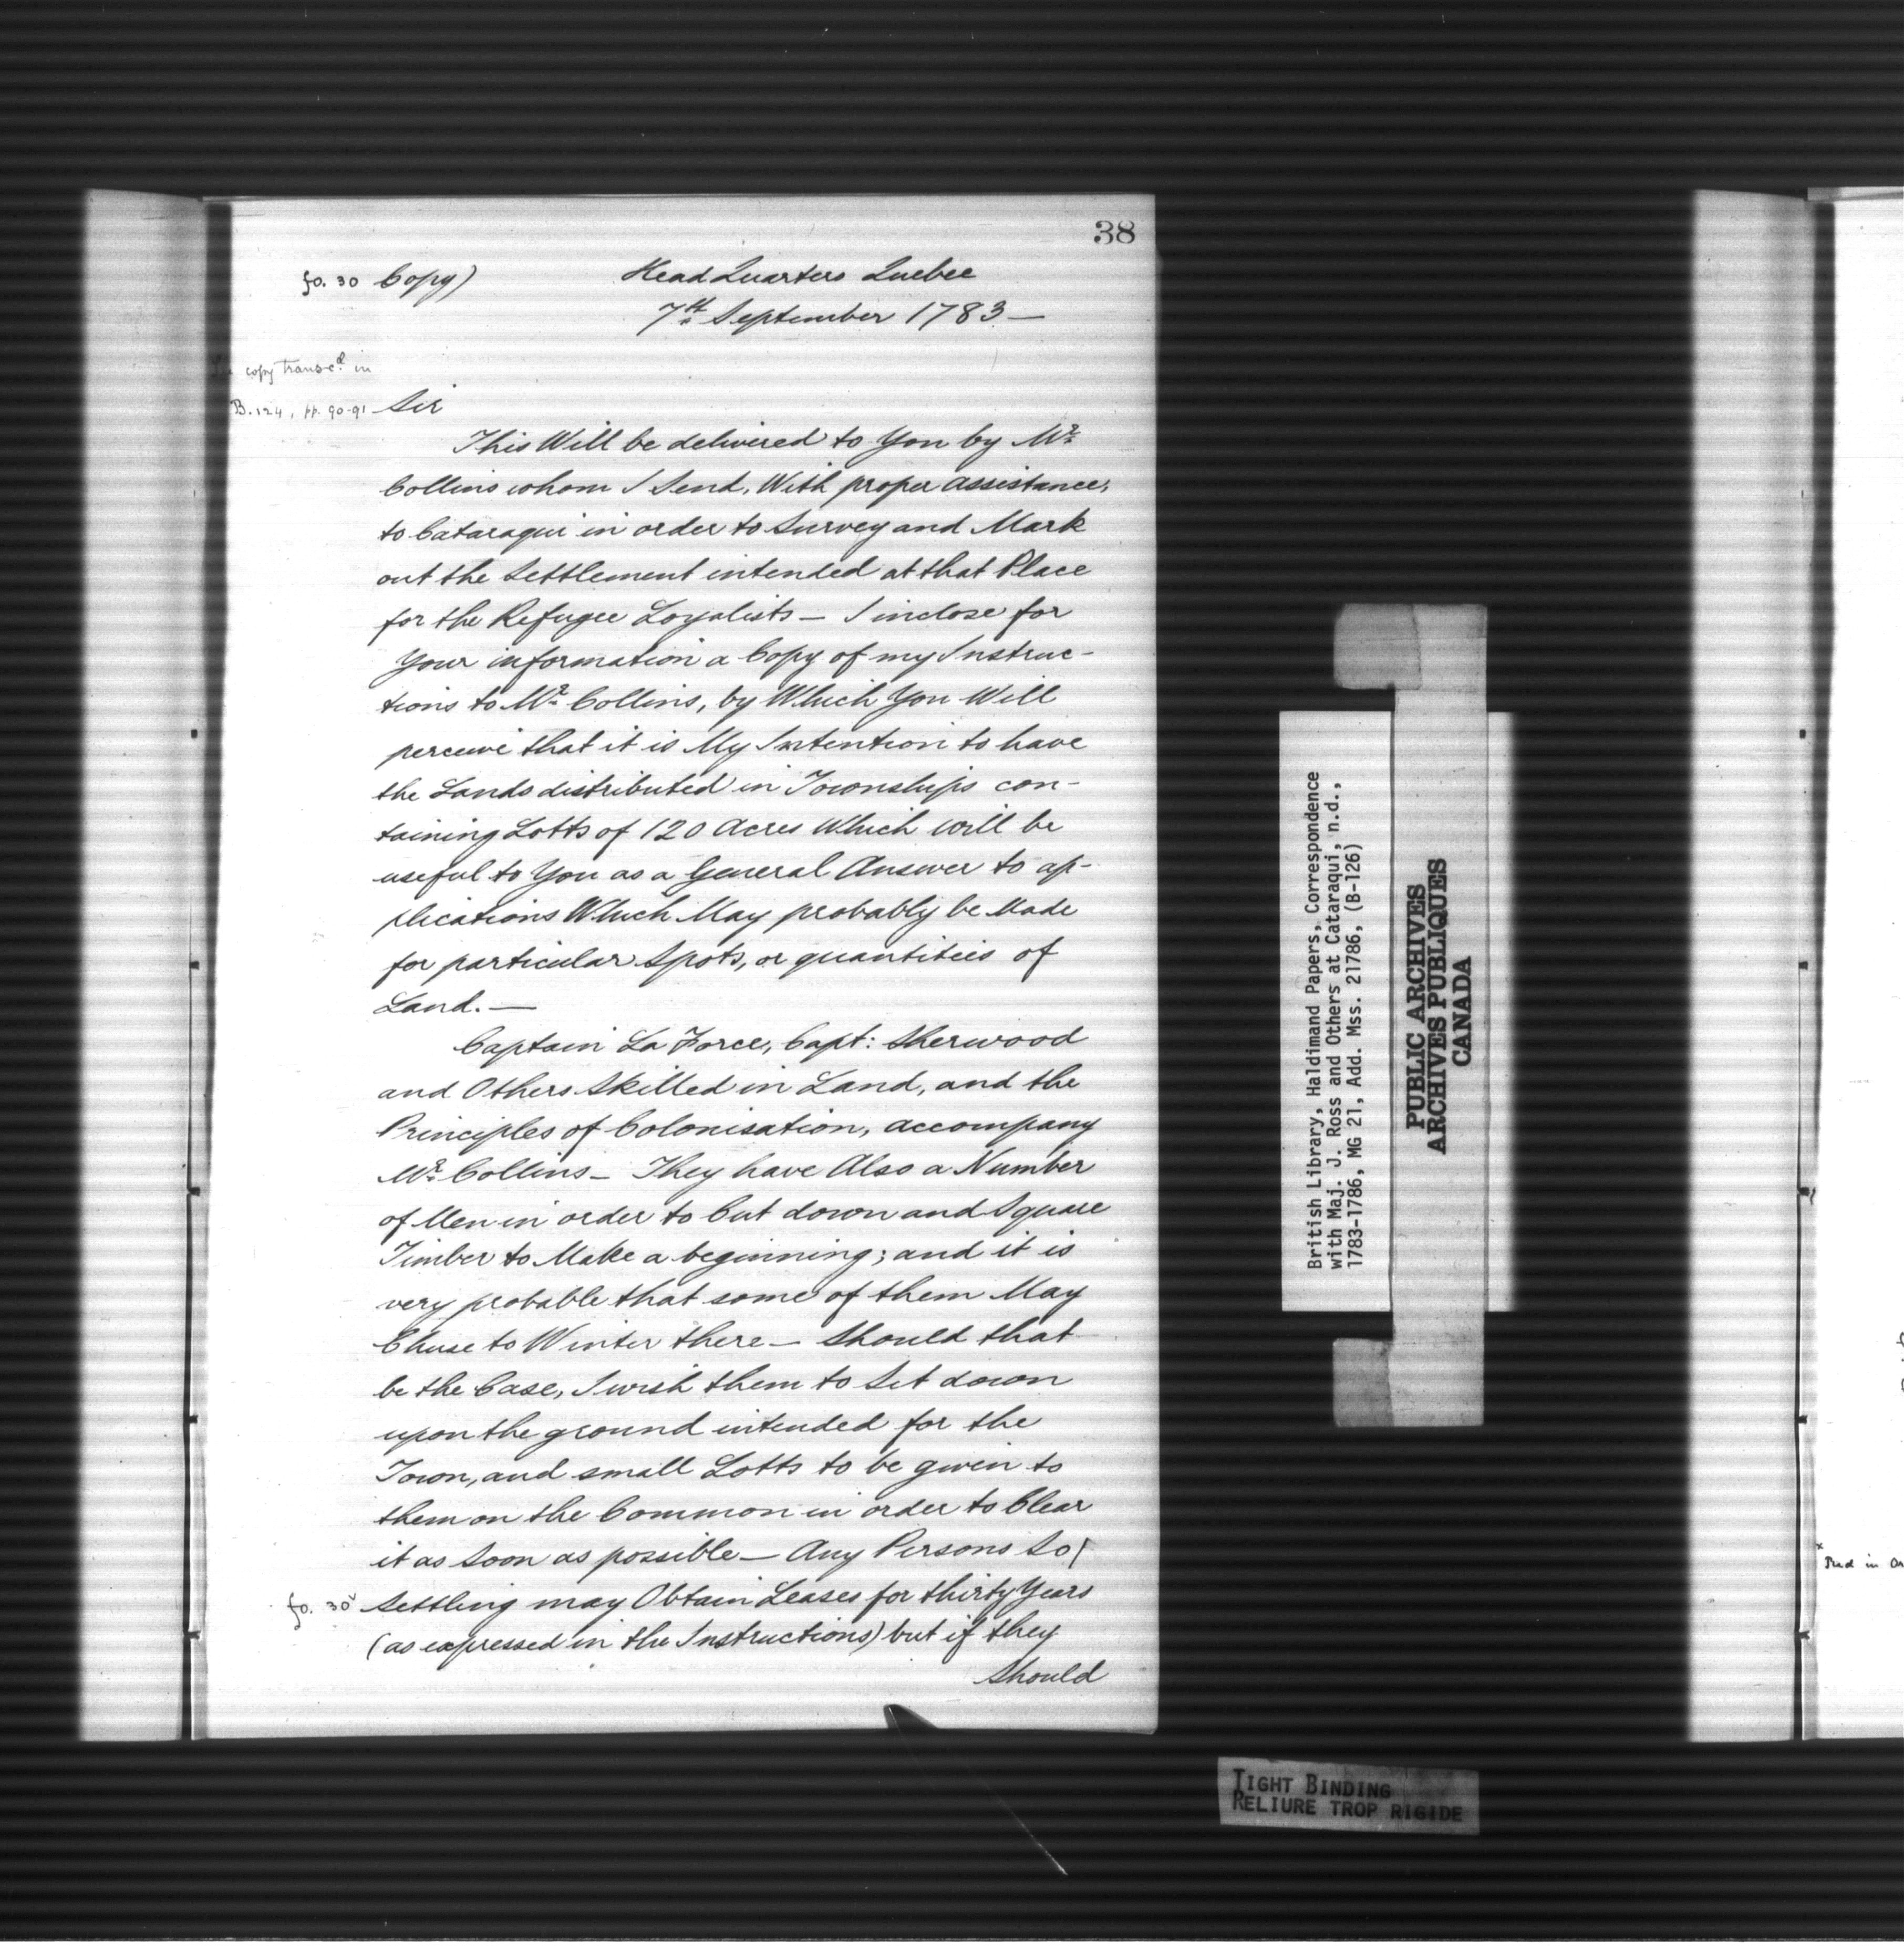 38
fo. 30 Copy)
Head Quarters Quebec
7th September 1783 —
copy transc.d in
B. 124, pp. 90-91
Sir
This Will be delivered to You by Mr.
Collins whom I Send, With proper assistance,
to Cataraqui in order to Survey and Mark
out the Settlement intended at that Place
for the Refugee Loyalists — I inclose for
Your information a Copy of my Instruc-
tions to Mr. Collins, by Which You Will
perceive that it is My Intention to have
the Lands distributed in Townships con-
taining Lotts of 120 Acres Which will be
useful to You as a General Answer to ap-
plications Which May probably be Made
for particular Spots, or quantities of
Land. —
Captain La Force, Capt: Sherwood
and Others Skilled in Land, and the
Principles of Colonisation, accompany
Mr. Collins — They have Also a Number
of Men in order to Cut down and Square
Timber to Make a beginning; and it is
very probable that some of them May
Chuse to Winter there — Should that
be the Case, I wish them to Set down
upon the ground intended for the
Town, and small Lotts to be given to
them on the Common in order to Clear
it as Soon as possible — Any Persons So/
fo. 30v Settling may Obtain Leases for thirty Years
(as expressed in the Instructions) but if they
Should
British Library, Haldimand Papers, Correspondence
with Maj. J. Ross and Others at Cataraqui, n.d.,
1783-1786, MG 21, Add. Mss. 21786, (B-126)
PUBLIC ARCHIVES
ARCHIVES PUBLIQUES
CANADA
TIGHT BINDING
RELIURE TROP RIGIDE